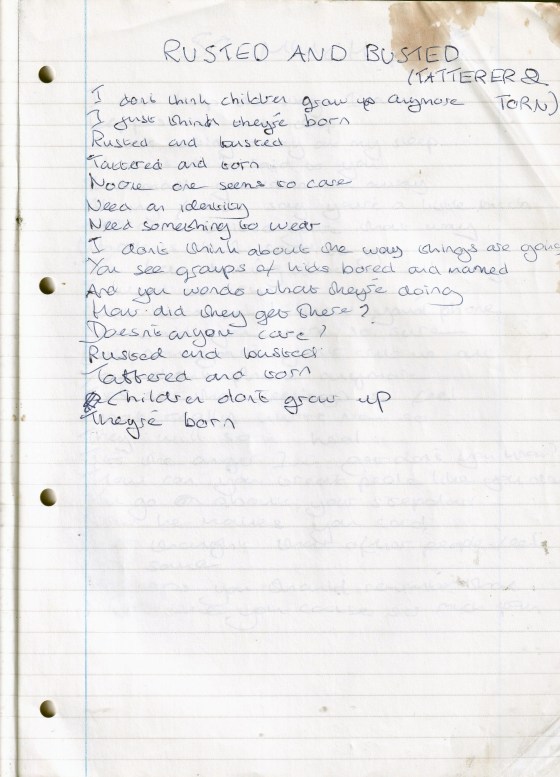 RUSTED AND BUSTED
(TATTERER & TORN)
I don't think children grow up anymore
I just think they're born
Rusted and busted
Tattered and torn
Noone one seems to care
Need an identity
Need something to wear
I don't think about the way things are going
You see groups of kids bored and
And you wonder what they're doing
How did they get there?
Doesn't anyone care?
Rusted and busted
Tattered and torn
Children don't grow up
They're born